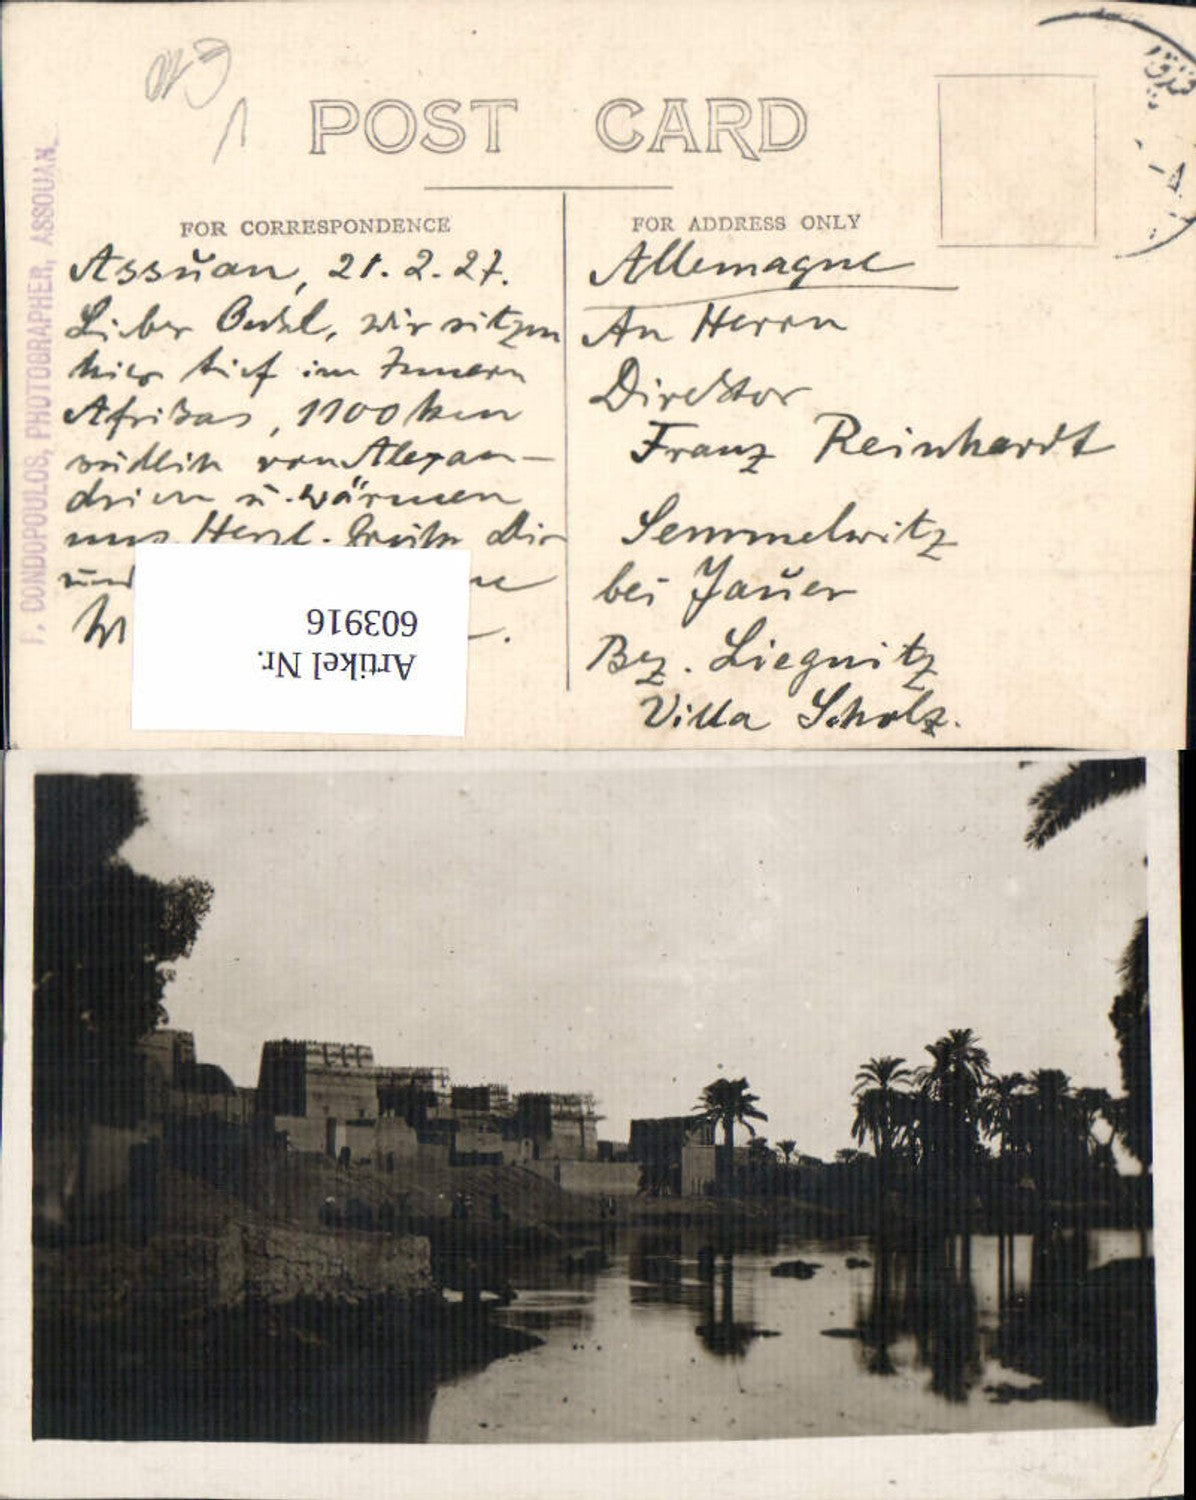 POST CARD
FOR CORRESPONDENCE
FOR ADDRESS ONLY
CONDOPOULOS, PHOTOGRAPHER, ASSOUAN
Assŭan, 21.2.27.
Lieber Onkel, wir sitzen
hier tief im Innern
Afrikas, 1100 km
südlich von Alexan-
drien ŭ. wärmen
uns. Herzl. Grüße Dir
ŭnd
Allemagne
An Herrn
Direktor
Franz Reinhardt
Semmelwitz
bei Jaŭer
Bez. Liegnitz
Villa Scholz.
Artikel Nr.
603916